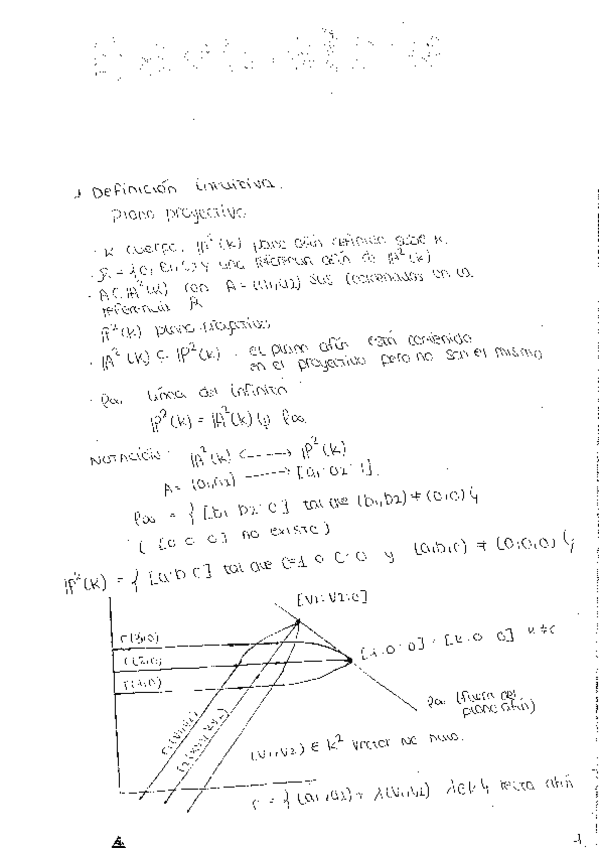 Definición intuitiva.
Plano proyectivo
· K cuerpo, IA²(K) plano afín definido sobre K.
una referencia afín de IA²(K)
con A = (a1,a2) sus coordenadas en la
referencia R
IP²(K) plano proyectivo
· IA²(K) ⊊ IP²(K). el plano afín está contenido
en el proyectivo pero no son el mismo
· l∞ línea del infinito
IP²(K) = IA²(K) ⊍ l∞
NOTACIÓN: IA²(K) ⊂----> IP²(K)
A = (a1,a2) -----> [a1:a2:1].
l∞ = { [b1:b2:0] tal que (b1,b2) ≠ (0,0) }
( [0:0:0] no existe )
IP²(K) = { [a:b:c] tal que c=1 o c=0 y (a,b,c) ≠ (0,0,0) }
[v1:v2:0]
[1:0:0]
l∞ (fuera del
plano afín)
(v1,v2) ∈ K² vector no nulo.
r = { (a1,a2) + λ(v1,v2) λ∈K } recta afín